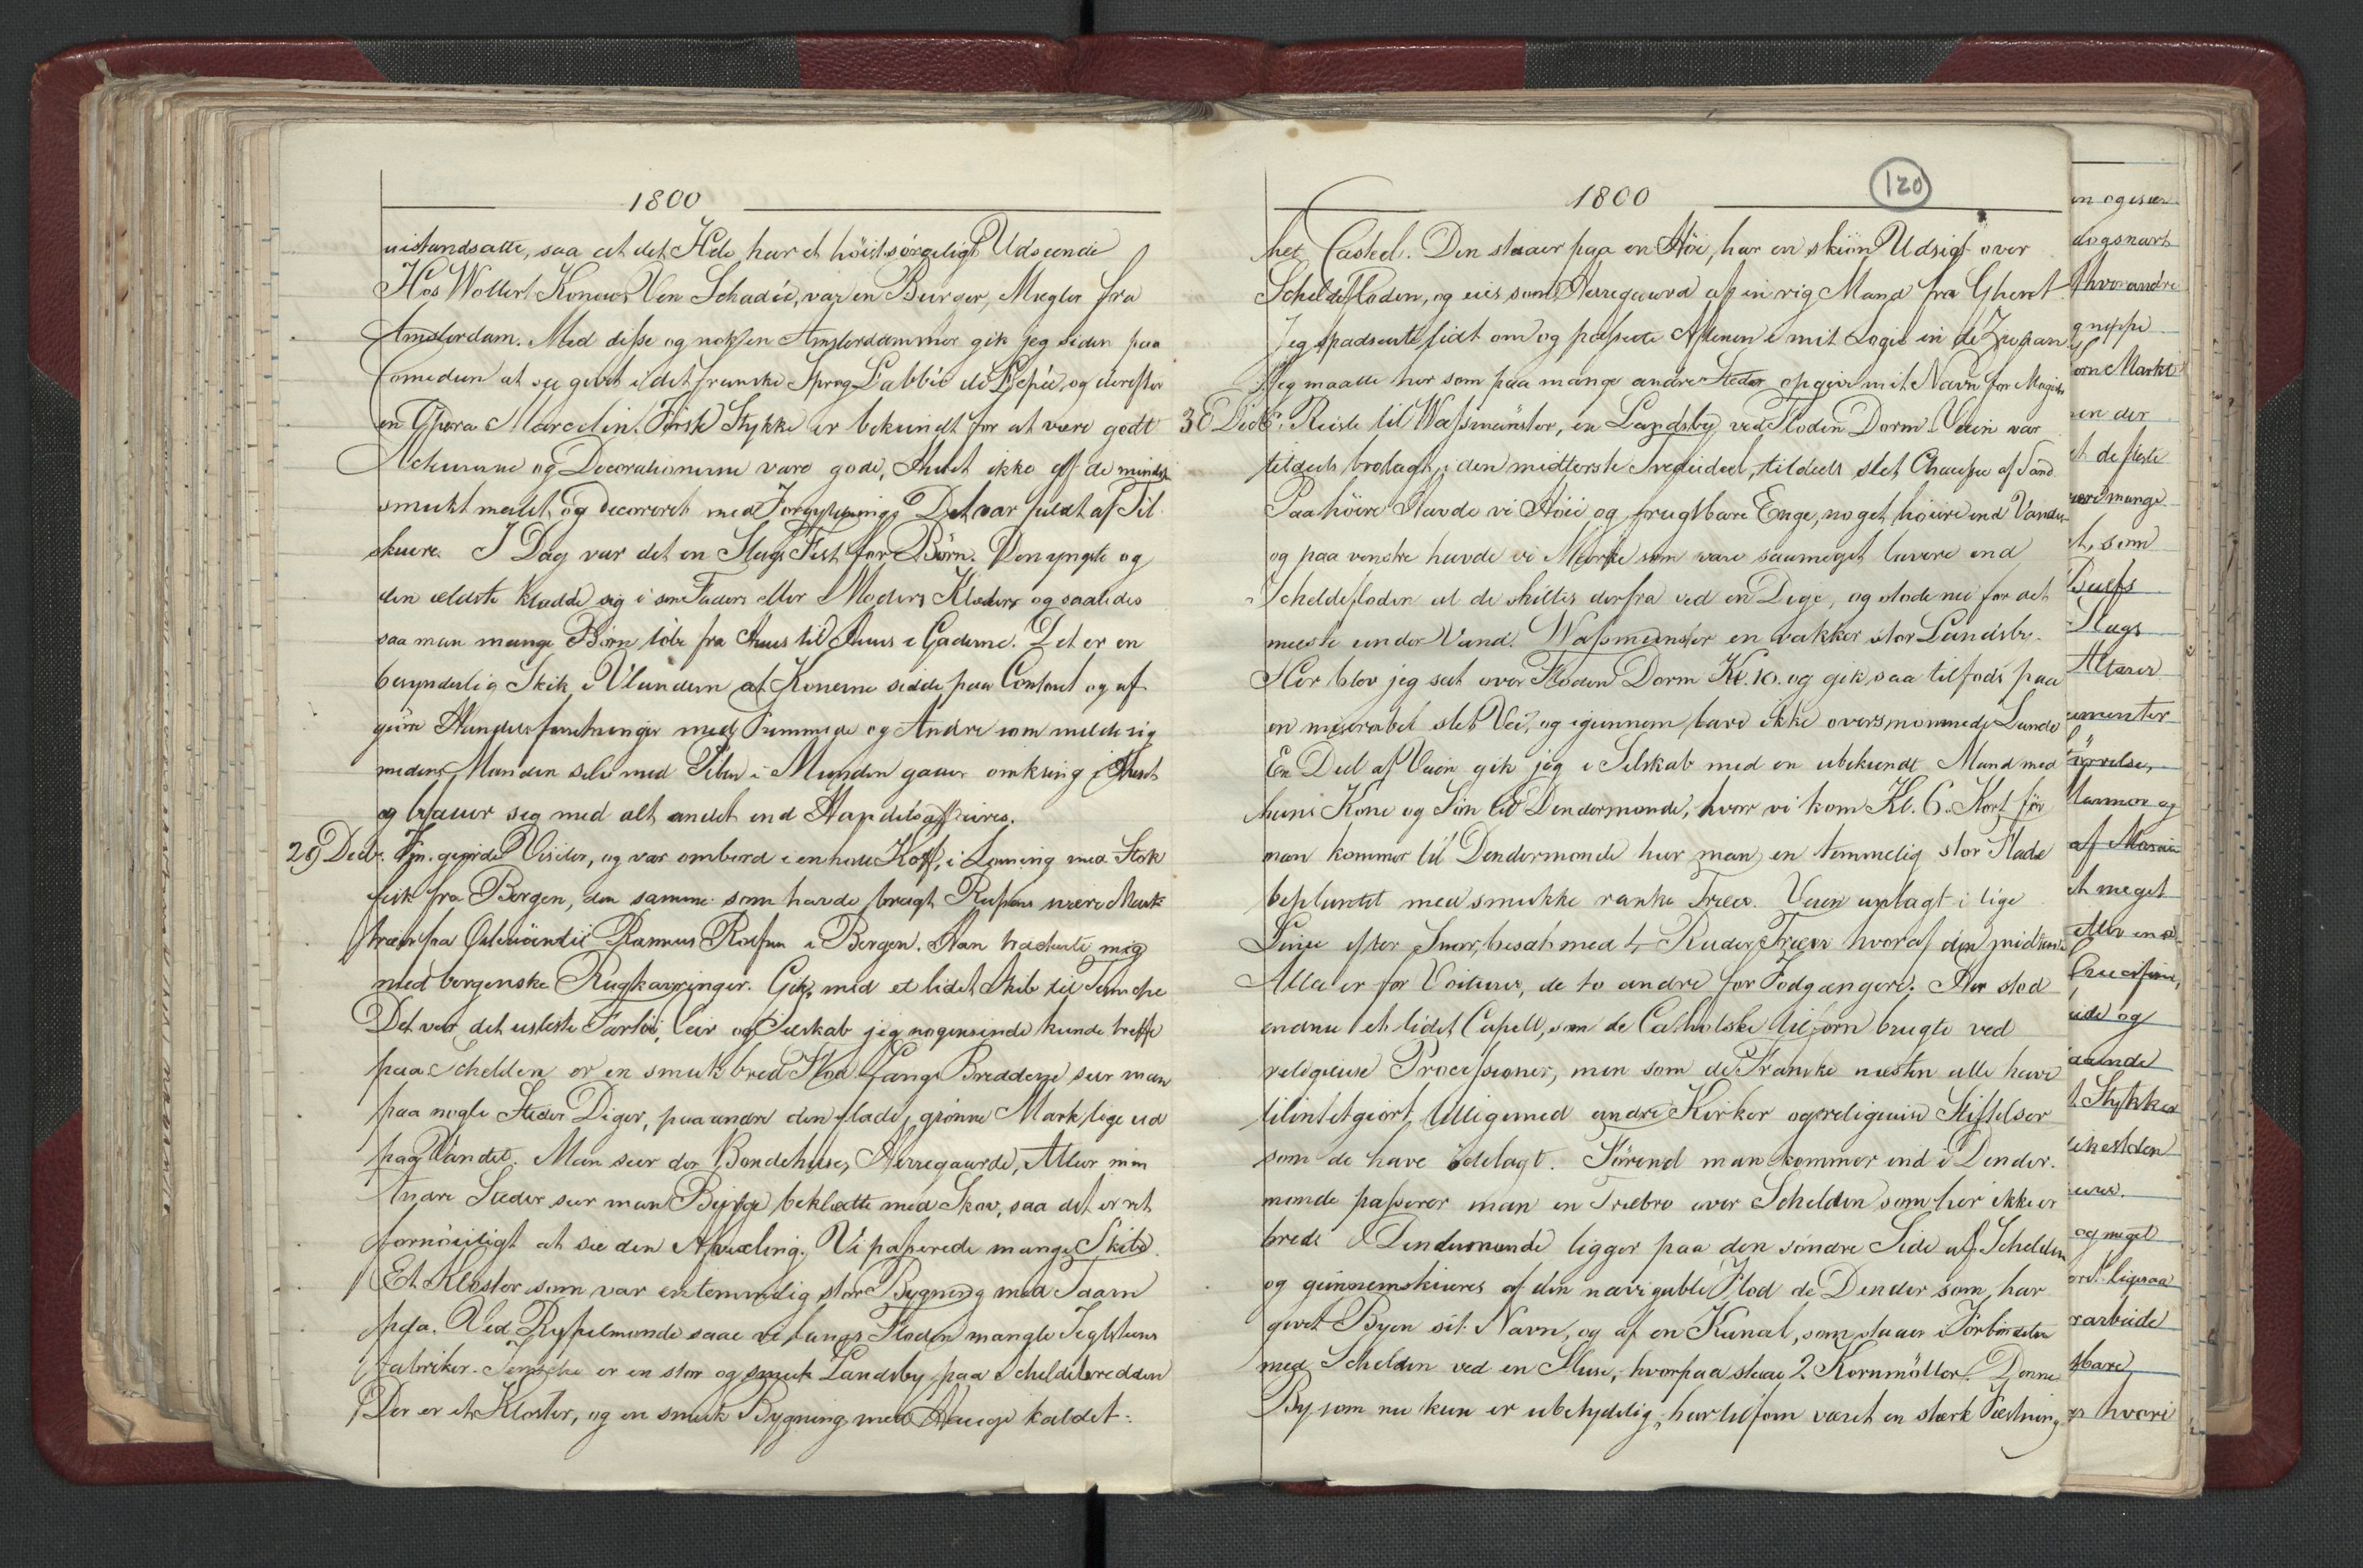 1800
uistandsatte, saa at det Hele har et höistsörgeligt Udseende
Hos Wollert Konows Ven Schadée, var en Burger, Mægler fra
Amsterdam. Med disse og nok en Amsterdammer gik jeg siden paa
Comedien at see givet i det franske Sprog L'abbée de L'Epée, og derefter
en Opera Marcelin. Förste Stykke er bekiendt for at være godt
Acteurerne og Decorationerne vare gode, Huset ikke af de mindst
smukt malet og decoreret med Forgyldning. Det var fuldt af Til-
skuere. I Dag var det en Slags Fest for Börn. Den yngste og
den ældste klædde sig i sin Faders eller Moders Klæder og saaledes
saa man mange Börn löbe fra Huus til Huus i Gaderne. Det er en
besynderlig Skik i Vlandern at Konerne sidde paa Contoret og af
giöre Handelsforretninger med Fremmede og Andre som melde sig
medens Manden selv med Piben i Munden gaaer omkring i Huset
og befatter sig med alt andet end Handelsaffairer.
29 Decbr. Fm. giorde Visiter, og var ombord i en holl. Koff, i Losning med Stok
fisk fra Bergen, den samme som havde bragt
fra Rasmus Rolfsen i Bergen. Han tracterte mig
med bergenske Rugkavringer. Gik med et lidet Skib til Temsche
Det var det usleste Fartöi, Veir og Selskab jeg nogensinde kunde træffe
paa Schelden er en smuk bred Flod. Langs Bredderne seer man
paa nogle Steder Diger, paa andre den flade, grönne Mark lige ud
paa Vandet. Man seer der Bondehuse, Herregaarde, Alleer men
Andre Steder seer man Bierge beklædte med Skov, saa det er ret
fornöieligt at see den Afvexling. Vi passerede mange Skibe.
Et Kloster som var en temmelig stor Bygning med Taarn
paa. Ved Rypelmonde saae vi langs Floden mangle Teglsteens
fabriker. Temsche er en stor og smuk Landsby paa Scheldebredden
Der er et Kloster, og en smuk Bygning med Hauge kaldet:
1800
120
het Casteel. Den staaer paa en Höi, har en skiön Udsigt over
Scheldefloden, og eies som Herregaard af en rig Mand fra Ghent.
Jeg spadserte lidt om og passerte Aftenen i mit Logie in de Zwaan
Jeg maatte her som paa mange andre Steder opgive mit Navn for Magistr
30 Decb. Reiste til Wassmünster, en Landsby ved Floden Dorm. Veien var
tildeels brolagt i den midterste Trediedeel, tildeels slet Chaussee af Sand
Paa höire Havde vi Höie og frugtbare Enge, noget höiere end Vandet
og paa venstre havde vi Marke som vare saameget lavere end
Scheldefloden at de skilles derfra ved en Dige, og stode nu for det
meeste under Vand. Wassmunster en vakker stor Landsby.
Her blev jeg sat over Floden Dorm Kl. 10. og gik saa tilfods paa
en miserabel slet Vei, og igiennem bare ikke oversvömmede Lande
En Deel af Veien gik jeg i Selskab med en ubekiendt Mand med
hans Kone og Sön til Dendermonde, hvor vi kom Kl. 6. Kort för
man kommer til Dendermonde har man en temmelig stor Slade
beplantet med smukke ranke Træer. Veien anlagt i lige
Linie efter Snor, besat med 4 Rader Træer hvoraf den midterste
Allee er for Voiturer, de to andre for Fodgængere. Her stod
endnu et lidet Capell, som de Catholske tilforn brugte ved
religieuse Processioner, men som de Franske næsten alle have
tilintetgiort, tilligemed andre Kirker og religieuse Stiftelser
som de have ödelagt. Förend man kommer ind i Dender-
monde passerer man en Træbro over Schelden som her ikke er
breed. Dendermonde ligger paa den söndre Side af Schelden
og giennemskiæres af den navigable Flod de Dender som har
givet Byen sit Navn, og af en Kanal, som staaer i Forbindelse
med Schelden ved en Sluse, hvorpaa staae 2 Kornmöller. Denne
By som nu kun er ubetydelig, har tilforn været en stærk Fæstning
dog snart
hverandre
orn Markt
en der
et de fleste
mange
et, som
Slags
Altarer
Marmor og
af Marmor
et meget
Crucifixer,
og
Stykker
og meget
ligesaa
arbeide
bare
hvori